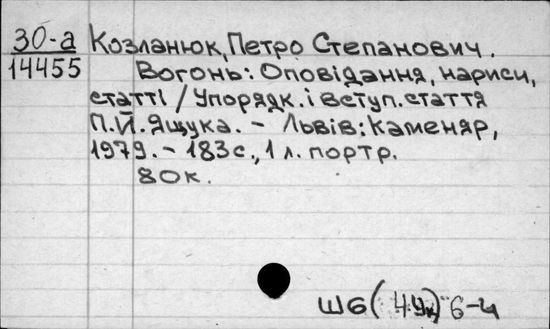 30-а Козланюк, Петро Степанович.
14455 Вогонь: Оповідання, нариси,
статті / Упорядк. і вступ. стаття
П.Й. Ящука. – Львів: Каменяр,
1979. – 183 с., 1 л. портр.
80к.
Ш6(4Ук) 6-4